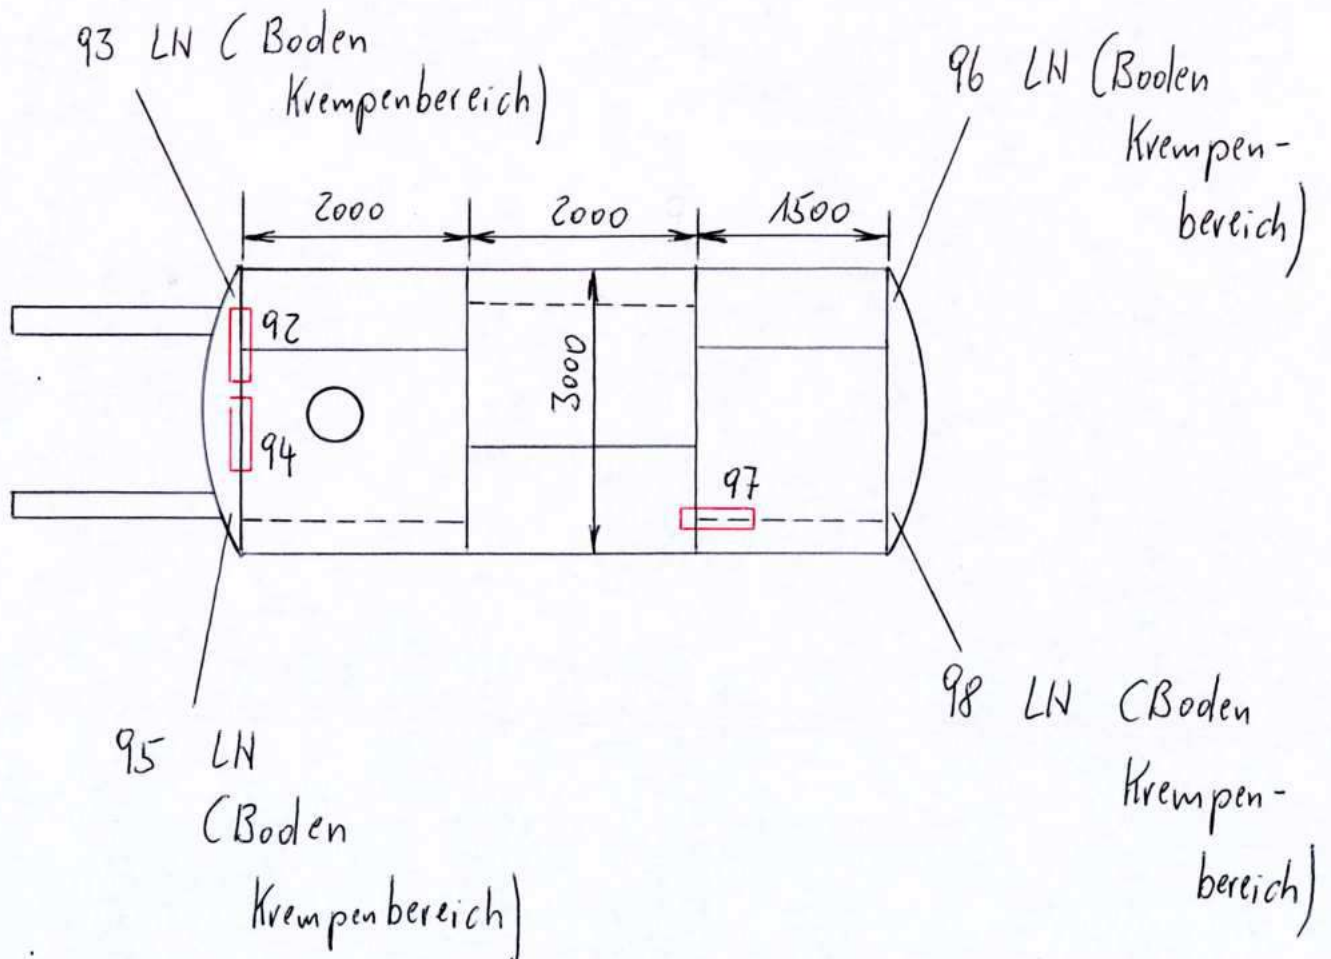 93 LN (Boden
Krempenbereich)
96 LN (Boden
Krempen-
bereich)
2000
2000
1500
92
3000
94
97
95 LN
(Boden
Krempenbereich)
98 LN (Boden
Krempen-
bereich)